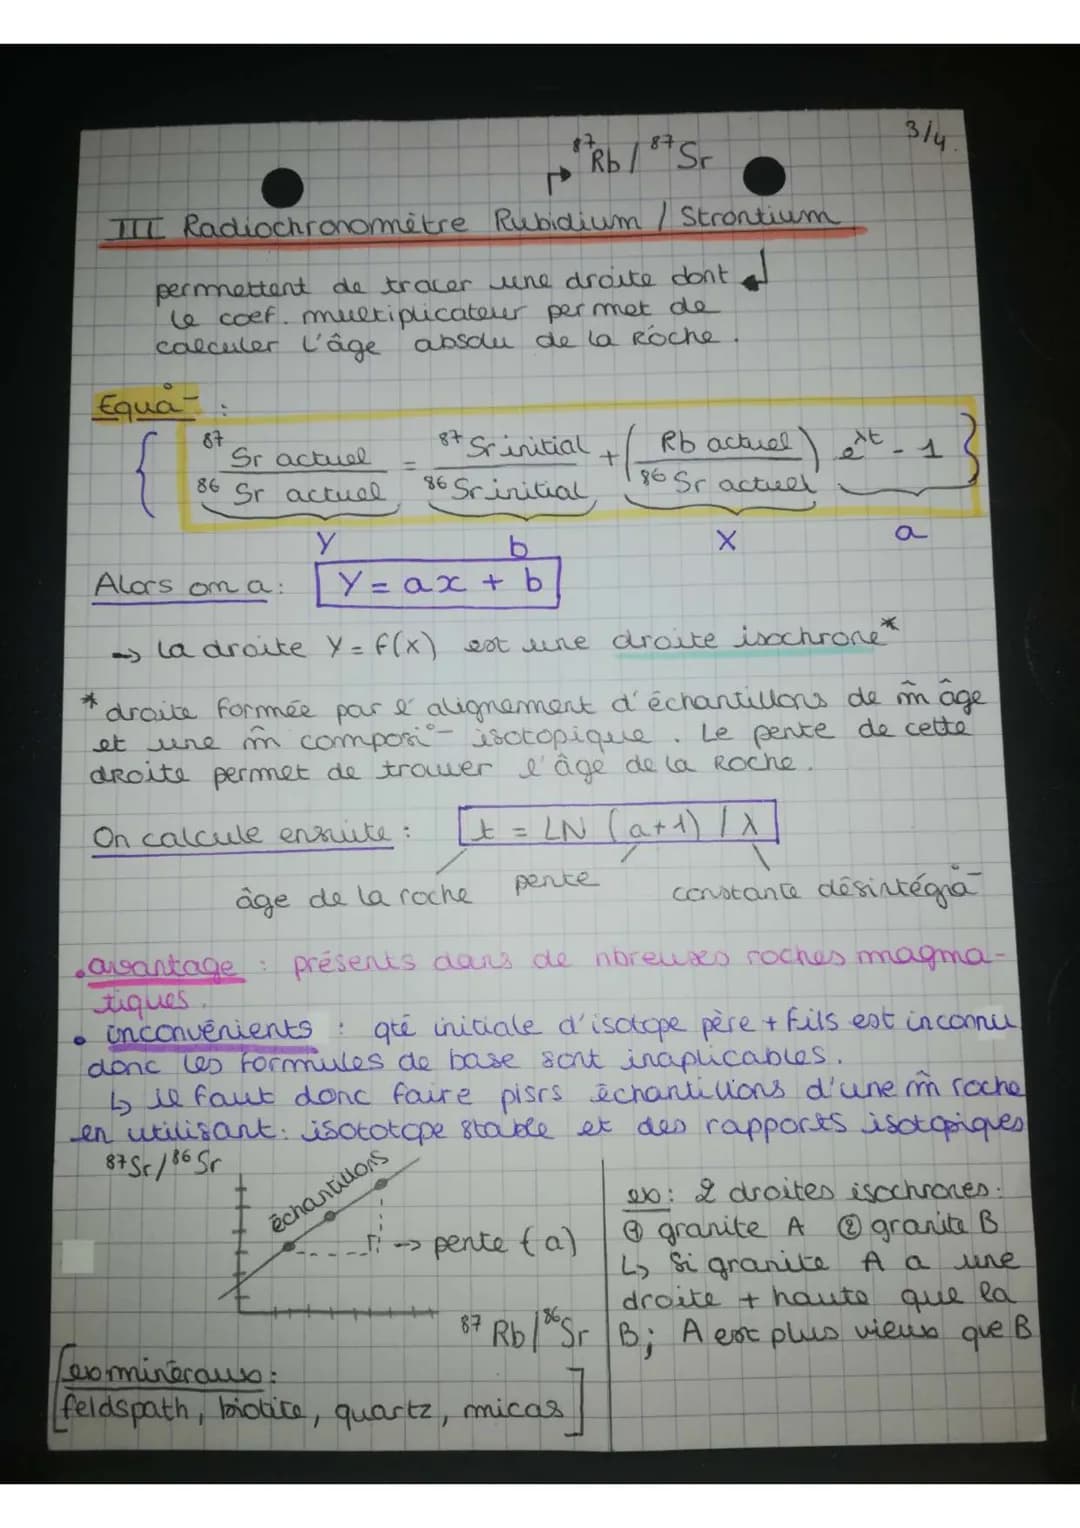 3/4.
⁸⁷Rb / ⁸⁷Sr
III Radiochronomètre Rubidium / Strontium
permettent de tracer une droite dont
le coef. multiplicateur permet de
calculer l'âge absolu de la Roche.
Equa° :
⁸⁷Sr actuel / ⁸⁶Sr actuel = ⁸⁷Sr initial / ⁸⁶Sr initial + (Rb actuel / ⁸⁶Sr actuel) e^λt - 1
Y b X a
Alors on a : Y = ax + b
→ la droite Y = f(x) est une droite isochrone*
* droite formée par l'alignement d'échantillons de m̂ âge
et une m̂ composi°- isotopique. Le pente de cette
dRoite permet de trouver l'âge de la Roche.
On calcule ensuite : t = LN (a+1) / λ
âge de la roche pente constante désintégra°-
• avantage : présents dans de nbreuses roches magma-
tiques.
• inconvénients : qté initiale d'isotope père + fils est inconnu
donc les formules de base sont inaplicables.
↳ il faut donc faire plsrs échantillons d'une m̂ roche
en utilisant : isototope stable et des rapports isotopiques
⁸⁷Sr/⁸⁶Sr
échantillons
→ pente (a)
⁸⁷Rb/⁸⁶Sr
ex : 2 droites isochrones :
① granite A ② granite B
↳ Si granite A a une
droite + haute que la
B ; A est plus vieux que B
[ex minéraux :
feldspath, biotite, quartz, micas]